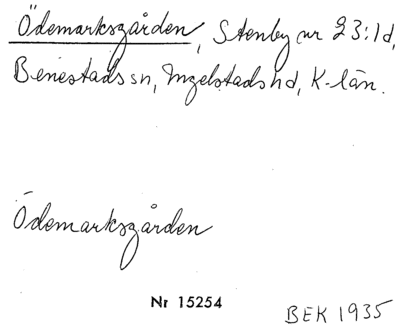 Ödemarksgården, Stenby nr 23:1d,
Benestads sn, Ingelstads hd, K-län.
Ödemarksgården
Nr 15254
BEK 1935